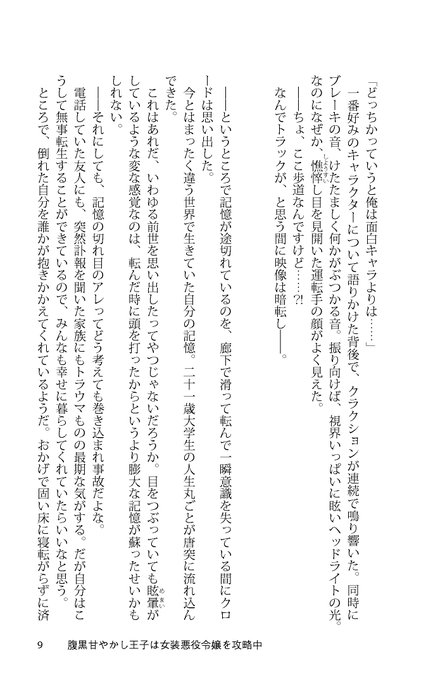 「どっちかっていうと俺は面白キャラよりは……」
一番好みのキャラクターについて語りかけた背後で、クラクションが連続で鳴り響いた。同時に
ブレーキの音、けたたましく何かがぶつかる音。振り向けば、視界いっぱいに眩いヘッドライトの光。
なのになぜか、憔悴し目を見開いた運転手の顔がよく見えた。
――ちょ、ここ歩道なんですけど……?!
なんでトラックが、と思う間に映像は暗転し――。
――というところで記憶が途切れているのを、廊下で滑って転んで一瞬意識を失っている間にクロ
ードは思い出した。
今とはまったく違う世界で生きていた自分の記憶。二十一歳大学生の人生丸ごとが唐突に流れ込ん
できた。
これはあれだ、いわゆる前世を思い出したってやつじゃないだろうか。目をつぶっていても眩暈が
しているような変な感覚なのは、転んだ時に頭を打ったからというより膨大な記憶が蘇ったせいかも
しれない。
――それにしても、記憶の切れ目のアレってどう考えても巻き込まれ事故だよな。
電話していた友人にも、突然訃報を聞いた家族にもトラウマものの最期な気がする。だが自分はこ
うして無事転生することができているので、みんなも幸せに暮らしてくれていたらいいなと思う。
ところで、倒れた自分を誰かが抱きかかえてくれているようだ。おかげで固い床に寝転がらずに済
9 腹黒甘やかし王子は女装悪役令嬢を攻略中